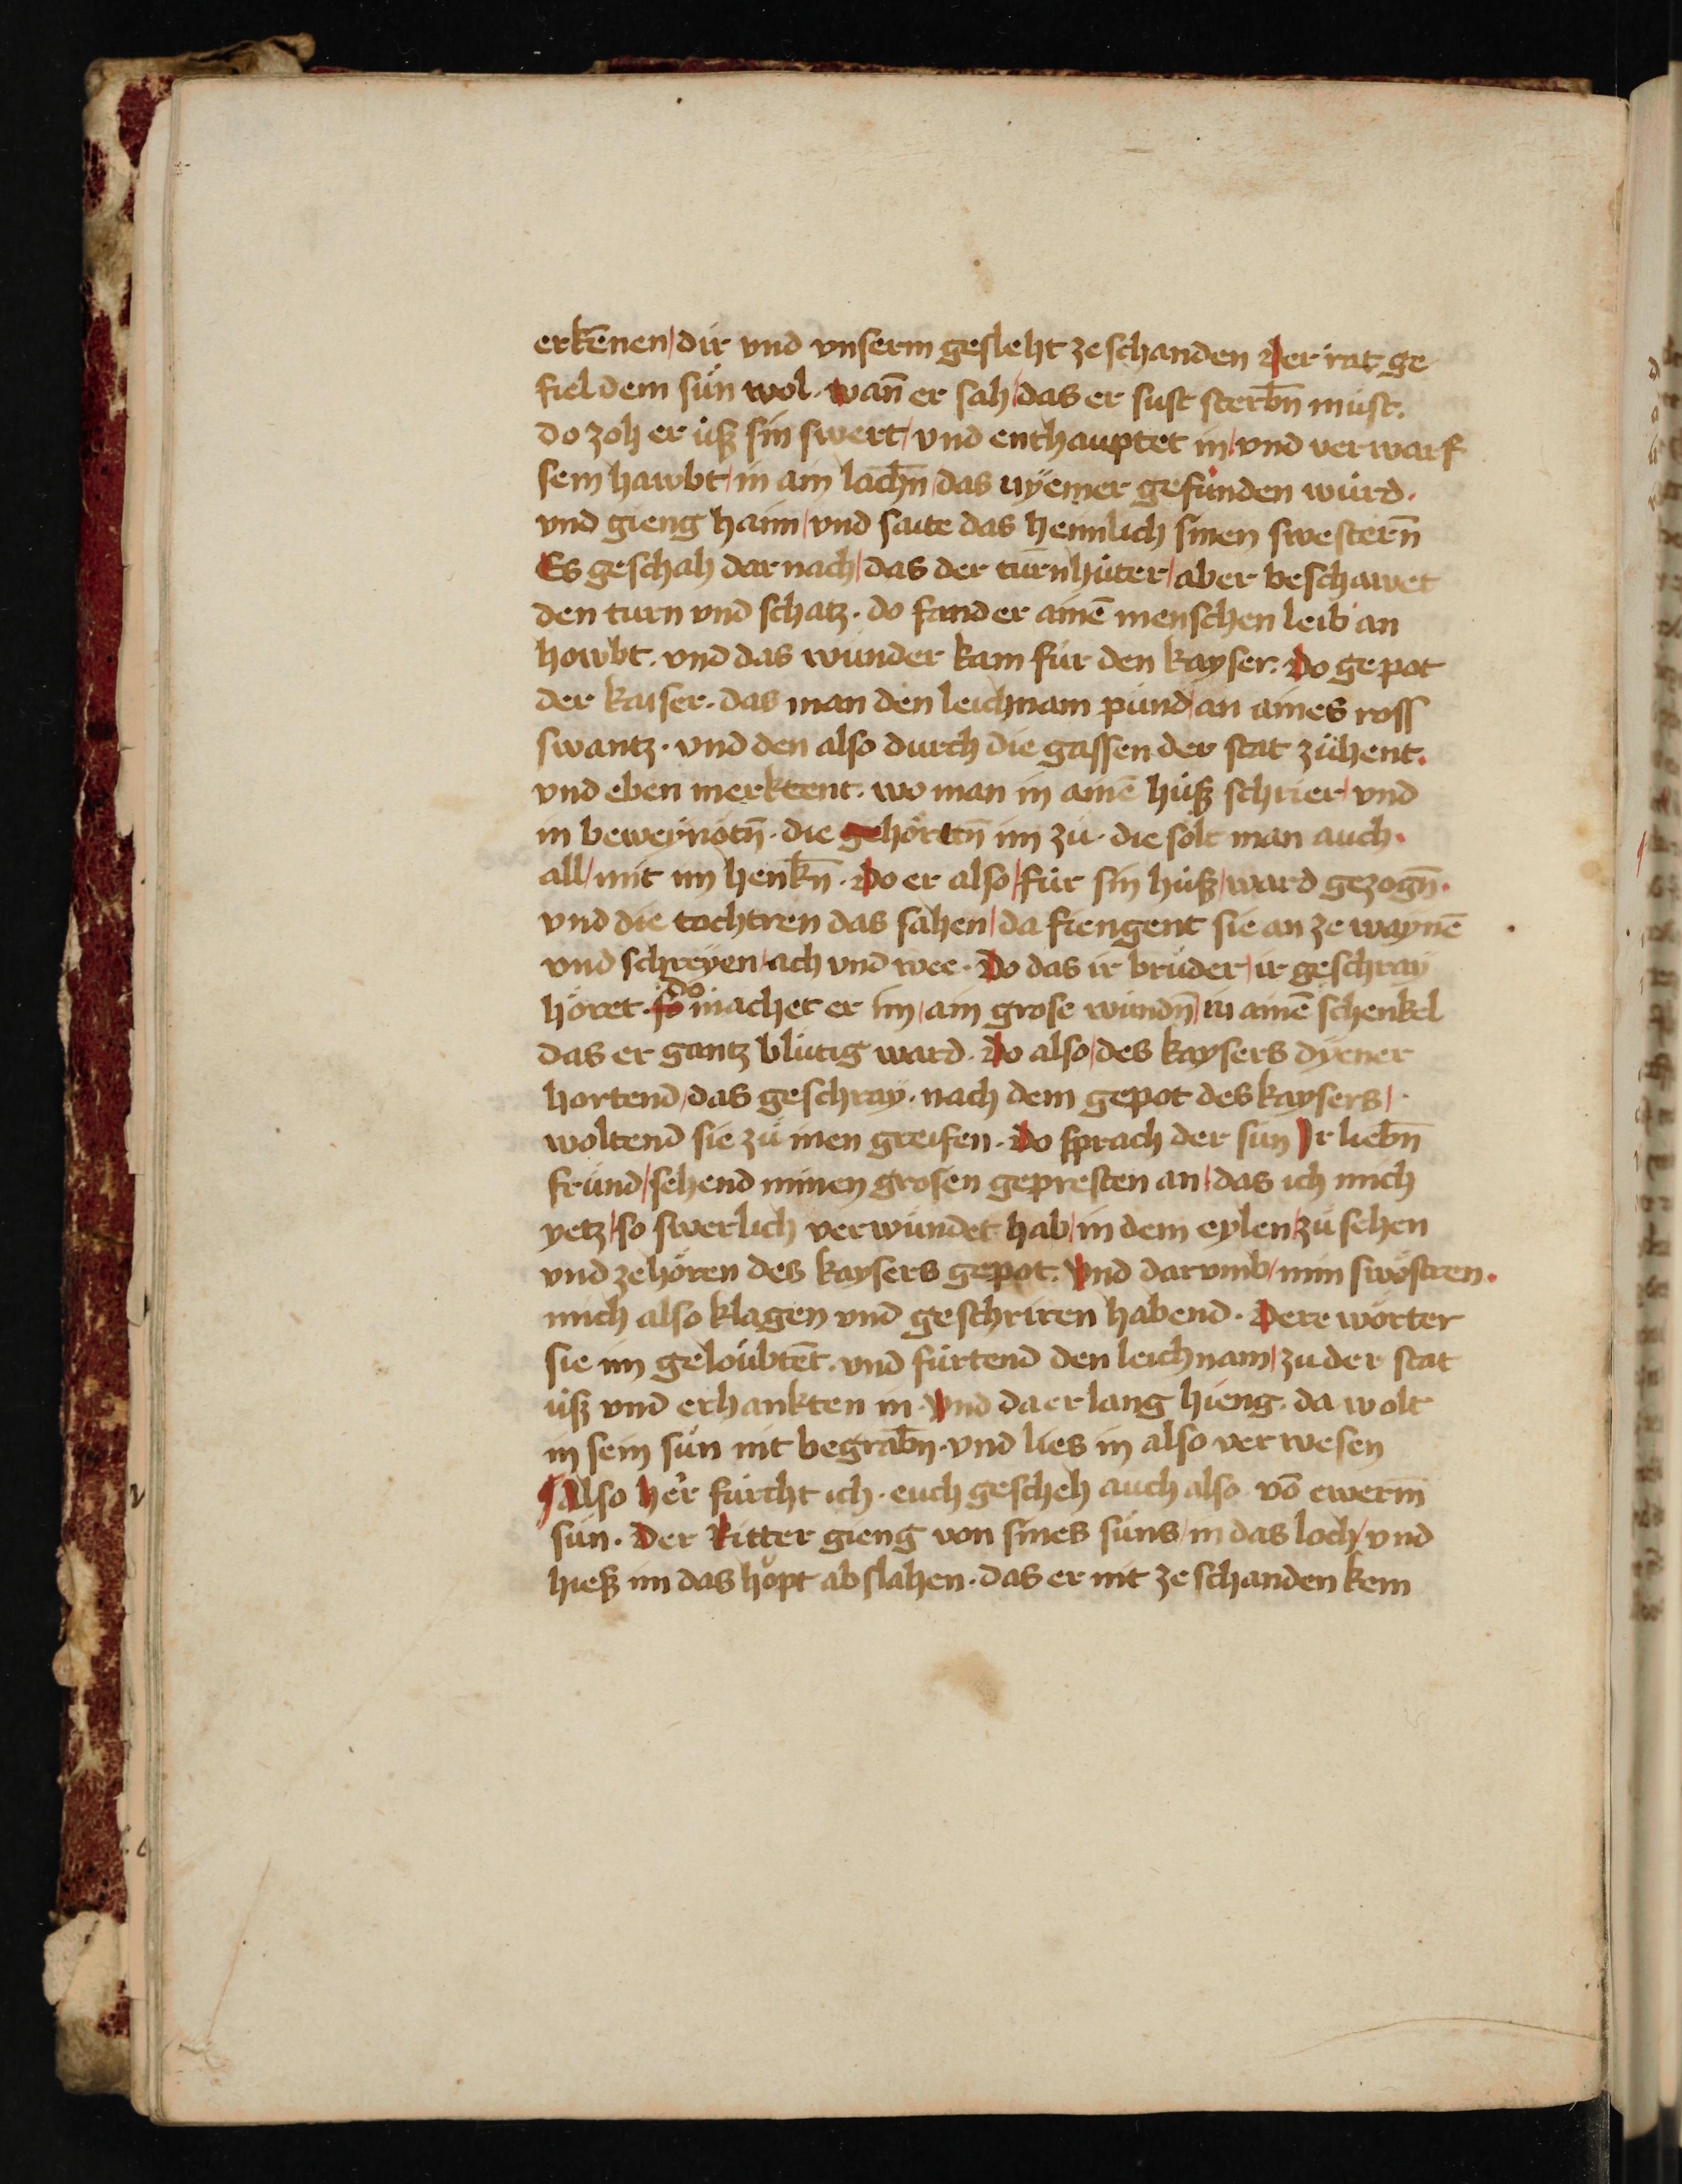 erkēnen / dir vnd vnserm gesleht ze schanden Der rat ge
fiel dem sün wol. wan̄ er sah / das er sust sterbn̄ müst.
do zoh er üß sin swert / vnd enthauptet in / vnd verwarf
sein hawbt / in ain lachn̄ / das nÿemer gefunden würd.
vnd gieng haim / vnd saite das heimlich sinen swestern̄
Es geschah dar nach / das der turn hüter / aber beschawet
den turn vnd schatz. do fand er ainē menschen leib an
howbt. vnd das wunder kam für den kayser. Do gepot
der kaiser. das man den leichnam pund / an aines ross
swantz. vnd den also durch die gassen der stat zühent.
vnd eben merktent. wo man in ainē huß schrier / vnd
in beweynötn̄. die gehörttn̄ im zu. die sölt man auch.
all / mit im henkn̄. Do er also / für sin huß / ward gezogn̄.
vnd die tochtren das sahen / da fiengent sie an ze waynē
vnd schreÿen / ach vnd wee. Do das ir brüder / ir geschray
höret. do machet er im / ain grose wundn̄ / in ainē schenkel
das er gantz blutig ward. Do also / des kaysers dÿener
hortend / das geschray. nach dem gepot des kaysers /
woltend sie zü inen greifen. Do sprach der sun Ir liebn̄
fründ / sehend minen grosen gepresten an / das ich mich
yetz / so swerlich verwundet hab / in dem eylen / zü sehen
vnd ze hören des kaysers gepot. Vnd darvmb / min swöstren.
mich also klagen vnd geschriren habend. Dere wörter
sie im geloubtēt. vnd fürtend den leichnam / zu der stat
üß vnd erhankten in. Vnd da er lang hieng. da wolt
in sein sün nit begrabn̄. vnd lies in also verwesen
Also her fürcht ich. euch gescheh auch also vō ewerm̄
sun. Der Ritter gieng von sines suns / in das loch / vnd
hieß im das hopt ab slahen. das er nit ze schanden kem